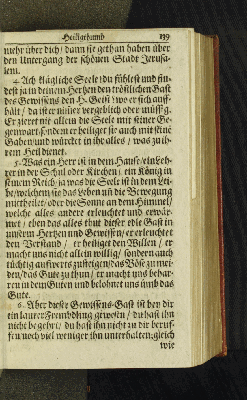 Heiligthumb 139
mehr über dich/ dann sie gethan haben über
den Untergang der schönen Stadt Jerusa-
lem.
4. Ach klägliche Seele! du fühlest und fin-
dest ja in deinem Hertzen den tröstlichen Gast
des Gewissens den H. Geist/ wo er sich auff-
hält/ da ist er nicht vergeblich oder müssig.
Er zieret nit allein die Seele mit seiner Ge-
genwart/ sondern er heiliget sie auch mit seine
Gaben/ und würcket in ihr alles/ was zu ih-
rem Heil dienet.
5. Was ein Herr ist in dem Hause/ ein Leh-
rer in der Schul oder Kirchen/ ein König in
seinem Reich/ ja was die Seele ist in dem Lei-
be/ welchem sie das Leben uñ die Bewegung
mittheilet/ oder die Sonne an dem Himmel/
welche alles andere erleuchtet und erwär-
met/ eben das alles thut dieser edle Gast in
unserm Hertzen und Gewissen/ er erleuchtet
den Verstand/ er heiliget den Willen/ er
macht uns nicht allein willig/ sondern auch
tüchtig auffwerts zusteigen/ das Böse zu mei-
den/ das Gute zu thun/ er macht uns behar-
ren in dem Guten und belohnet uns umb das
Gute.
6. Aber dieser Gewissens-Gast ist bey dir
ein lauter Frembdling gewesen/ du hast ihn
nicht begehrt/ du hast ihn nicht zu dir beruf-
fen/ noch viel weniger ihn unterhalten; gleich
wie